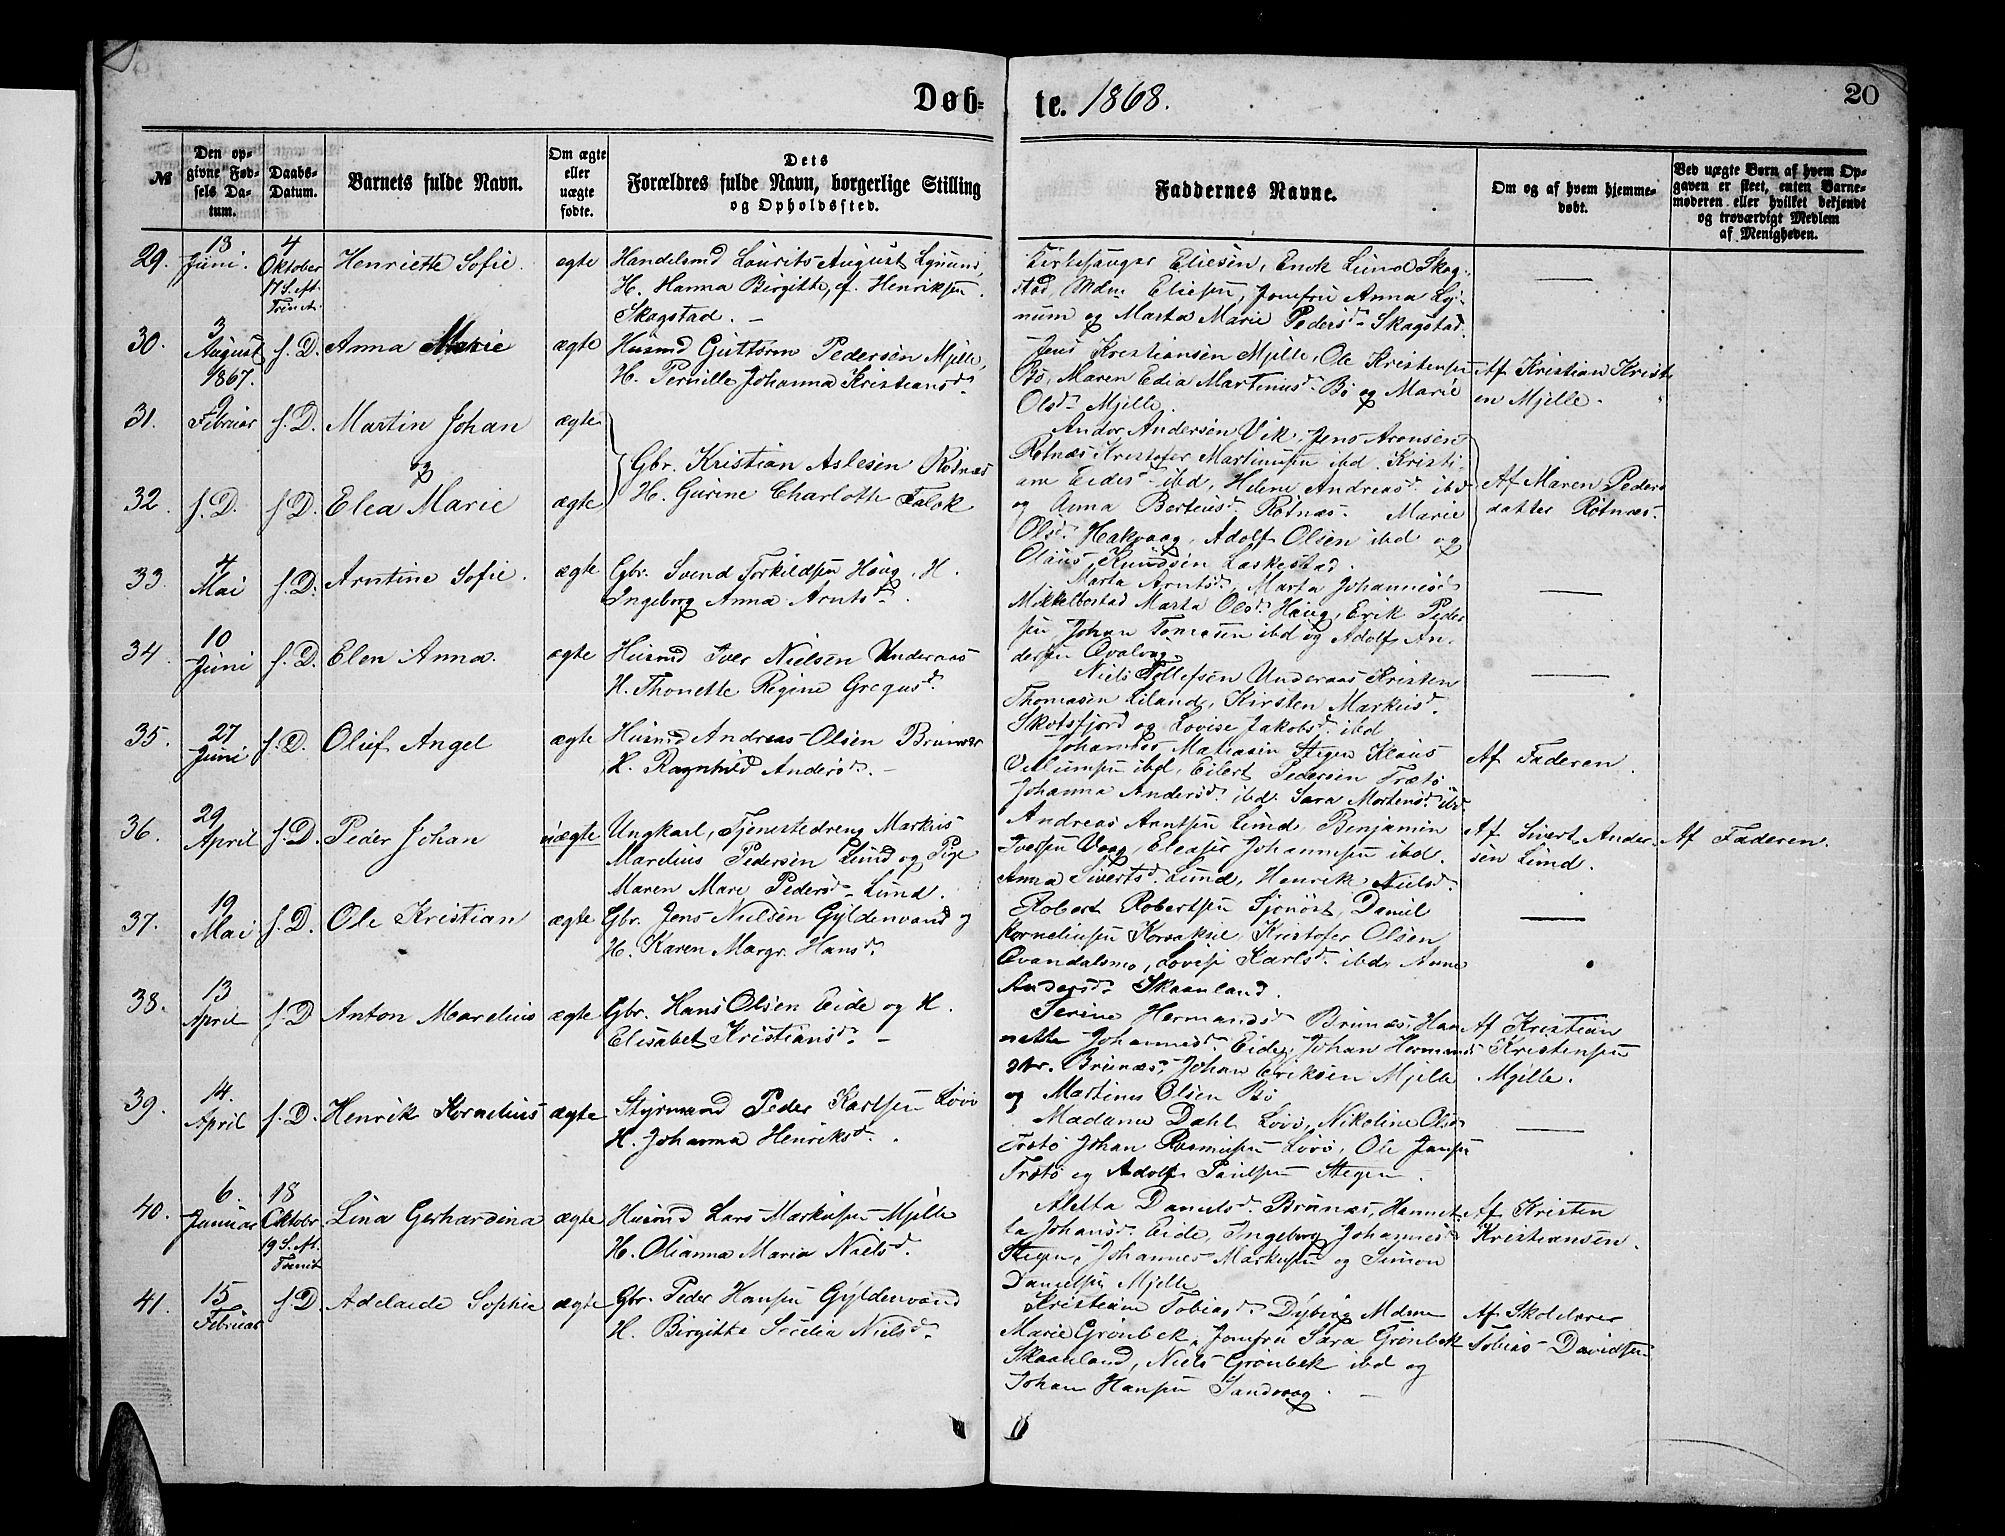 Døb-
te. 1868.
20
№
Den op-
givne Fød-
sels Da-
tum.
Daabs-
Datum.
Barnets fulde Navn.
Om ægte
eller
uægte
fødte.
Dets
Forældres fulde Navn, borgerlige Stilling
og Opholdssted.
Faddernes Navne.
Om og af hvem hjemme-
døbt.
Ved uægte Børn af hvem Op-
gaven er skeet, enten Barne-
moderen eller hvilket bekjendt
og troværdigt Medlem
af Menigheden.
29.
13
Juni.
4
Oktober
17 S. Af.
Trinit.
Henriette Sofie.
ægte
Handelsmd Laurits August Lynum,
H. Hanna Birgitte, f. Henriksen.
Skagstad. —
Kirkesanger Eliesen, Enok Lund Skag-
stad, Mdm Eliesen, Jomfru Anna Ly-
num og Marta Marie Pedersd. Skagstad.
—
30.
3
August
1867.
s. D.
Anna Marie
ægte
Husmd Guttorm Pedersen Mjelle,
H. Pernille Johanna Kristiansd.
Jens Kristiansen Mjelle, Ole Kristensen
Bø, Maren Edia Martinusd. Bø og Marie
Olsd. Mjelle.
Af Kristian Krist-
en Mjelle.
31.
9
Februar
s. D.
Martin Johan
ægte
og
Gbr. Kristian Aslesen Rotnæs
H. Gurine Charlotte Falck
Andor Andersen Vik, Jens Aronsen
Rotnæs, Kristofer Martinusen ibd. Kristi-
ane Eidesd. ibd, Helene Andreasd. ibd
og Anna Berteusd. Rotnæs. Marie
Olsd. Hakvaag, Adolf Olsen ibd og
Olaus Knudsen Laskestad.
Af Maren Peders
datter Rotnæs.
32.
s. D.
s. D.
Elea Marie
ægte
33.
4
Mai
s. D.
Arntine Sofie.
ægte
Gbr. Svend Torkildsen Haug, H.
Ingeborg Anna Arntsd.
Marta Arntsd. Marta Johannesd
Mikkelbostad Marta Olsd. Haug, Erik Peder
sen, Johan Tomasen ibd og Adolf An-
dersen Qvalvag.
—
34.
10
Juni
s. D.
Elen Anna.
ægte
Husmd Iver Nielsen Underaas
H. Thonette Regine Gregusd.
Niels Tollefsen Underaas Kristen
Thomasen Leland, Kirsten Markusd.
Skotsfjord og Lovise Jakobsd. ibd
—
35.
27
Juni
s. D.
Oluf Angel
ægte
Husmd Andreas Olsen Brunæs
H. Ragnhild Andersd. —
Mathiasen Stegen Klaus
ibd, Eilert Pedersen Trøtø
Johanna Andersd. ibd. Sara Mortensd. ibd
Af Faderen.
36.
29
April
s. D.
Peder Johan
uægte
Ungkarl, Tjenestedreng Markus
Marelius Pedersen Lund og Pige
Maren Mare Pedersd. Lund.
Andreas Arntsen Lund, Benjamin
Iversen Vaag, Eleaser Johannesen ibd.
Anna Sivertsd. Lund, Henrike Nielsd.
Af Sivert Ander-
sen Lund.
Af Faderen.
37.
19
Mai
s. D.
Ole Kristian
ægte
Gbr. Jens Nielsen Gyldenvand og
H. Karen Margr. Hansd.
Robert Robertsen Sjonøst, Daniel
Kornelinsen Korsaksel, Kristofer Olsen
Qvandalsmo, Lovise Karlsd. ibd, Anne
Andersd. Skaanland.
—
38.
13
April
s. D
Anton Marelius
ægte
Gbr. Hans Olsen Eide og H.
Elisabet Kristiansd. —
Serine Hermandsd. Brunæs, Han
nette Johannesd. Eide, Johan Hermands
Brunæs, Johan Eriksen Mjelle
og Martinus Olsen Bø
Af Kristian
Kristensen
Mjelle.
39.
14.
April
s. D.
Henrik Kornelius
ægte
Styrmand Peder Karlsen Løvø
H. Johanna Henriksd.
Madame Dahl Løvø, Nikoline Olsd
Trøtø Johan Rasmusen Løvø, Ole Jansen
Trøtø og Adolf Paulsen Stegen.
—
40.
6.
Januar
18
Oktobr.
19 S. Af.
Trinit.
Lina Gerhardina
ægte
Husmd Lars Markusen Mjelle
H. Olianna Maria Nielsd.
Aletta Danielsd. Brunæs, Hannet-
ta Johansd. Eide, Ingeborg Johannesd
Stegen, Johannes Markusen og Simon
Danielsen Mjelle
Af Kristen
Kristiansen.
41.
15
Februar
s. D.
Adelaide Sophie
ægte
Gbr. Peder Hansen Gyldenvand
H. Birgitte Secelia Nielsd.
Kristiane Tobiasd. Dyberg Mdme
Marie Grønbek, Jomfru Sara Grønbek
Skaanland, Niels Grønbek ibd og
Johan Hansen Sandvaag. —
Af Skolelærer
Tobias Davidsen